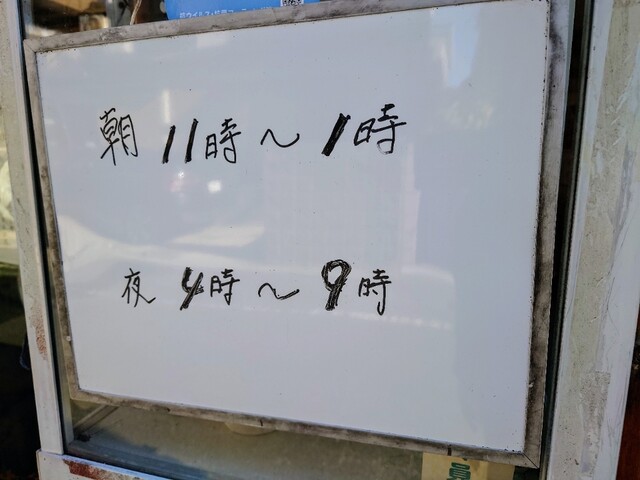 朝 11時～1時
夜 4時～9時